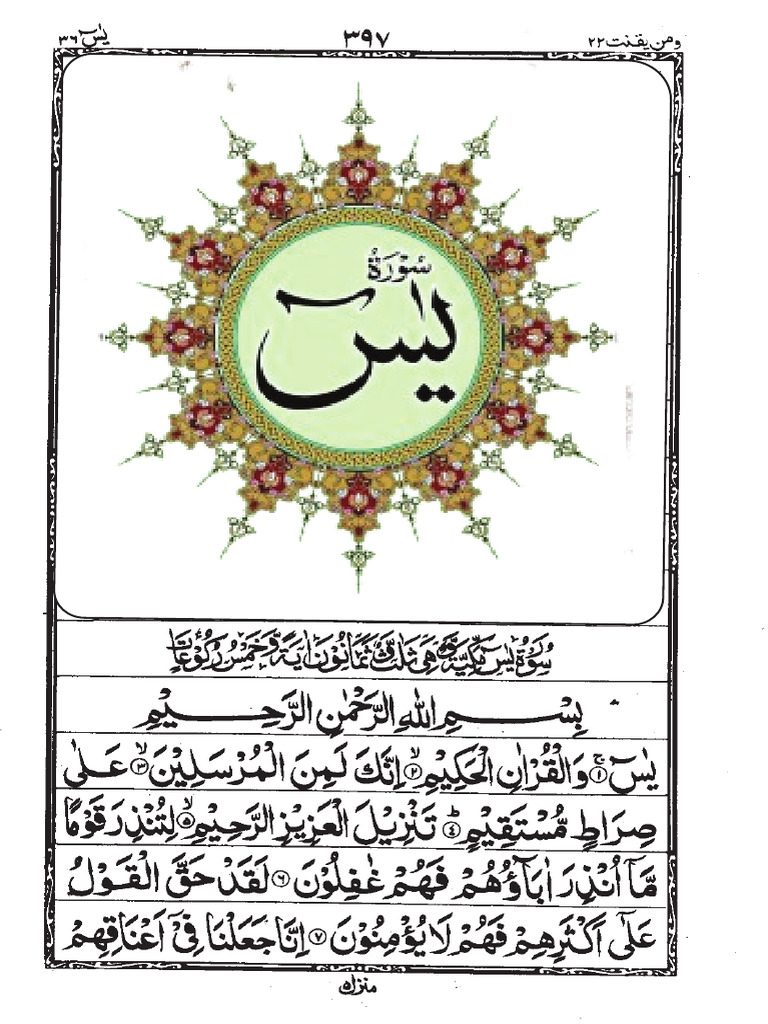 ومن يقنت ٢٢
٣٩٧
يٰسٓ ٣٦
سُوْرَةُ
يٰسٓ
سُوْرَةُ يٰسٓ مَكِّيَّةٌ وَّهِيَ ثَلٰثٌ وَّ ثَمَانُوْنَ اٰيَةً وَّ خَمْسُ رُكُوْعَاتٍ
بِسْمِ اللهِ الرَّحْمٰنِ الرَّحِيْمِ
يٰسٓ ۚ﴿١﴾ وَالْقُرْاٰنِ الْحَكِيْمِ ۙ﴿٢﴾ اِنَّكَ لَمِنَ الْمُرْسَلِيْنَ ۙ﴿٣﴾ عَلٰى
صِرَاطٍ مُّسْتَقِيْمٍ ؕ﴿٤﴾ تَنْزِيْلَ الْعَزِيْزِ الرَّحِيْمِ ۙ﴿٥﴾ لِتُنْذِرَ قَوْمًا
مَّاۤ اُنْذِرَ اٰبَآؤُهُمْ فَهُمْ غٰفِلُوْنَ ﴿٦﴾ لَقَدْ حَقَّ الْقَوْلُ
عَلٰۤى اَكْثَرِهِمْ فَهُمْ لَا يُؤْمِنُوْنَ ﴿٧﴾ اِنَّا جَعَلْنَا فِيْۤ اَعْنَاقِهِمْ
منزل ٥